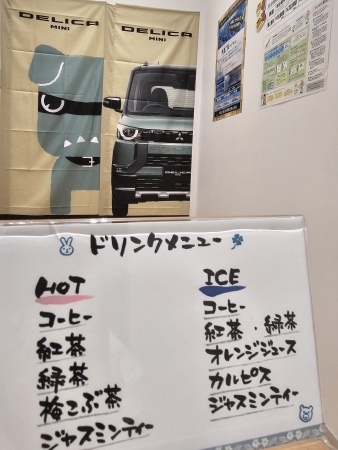 DELICA
MINI
DELICA
MINI
DELICA
ドリンクメニュー
HOT
コーヒー
紅茶
緑茶
梅こぶ茶
ジャスミンティー
ICE
コーヒー
紅茶・緑茶
オレンジジュース
カルピス
ジャスミンティー